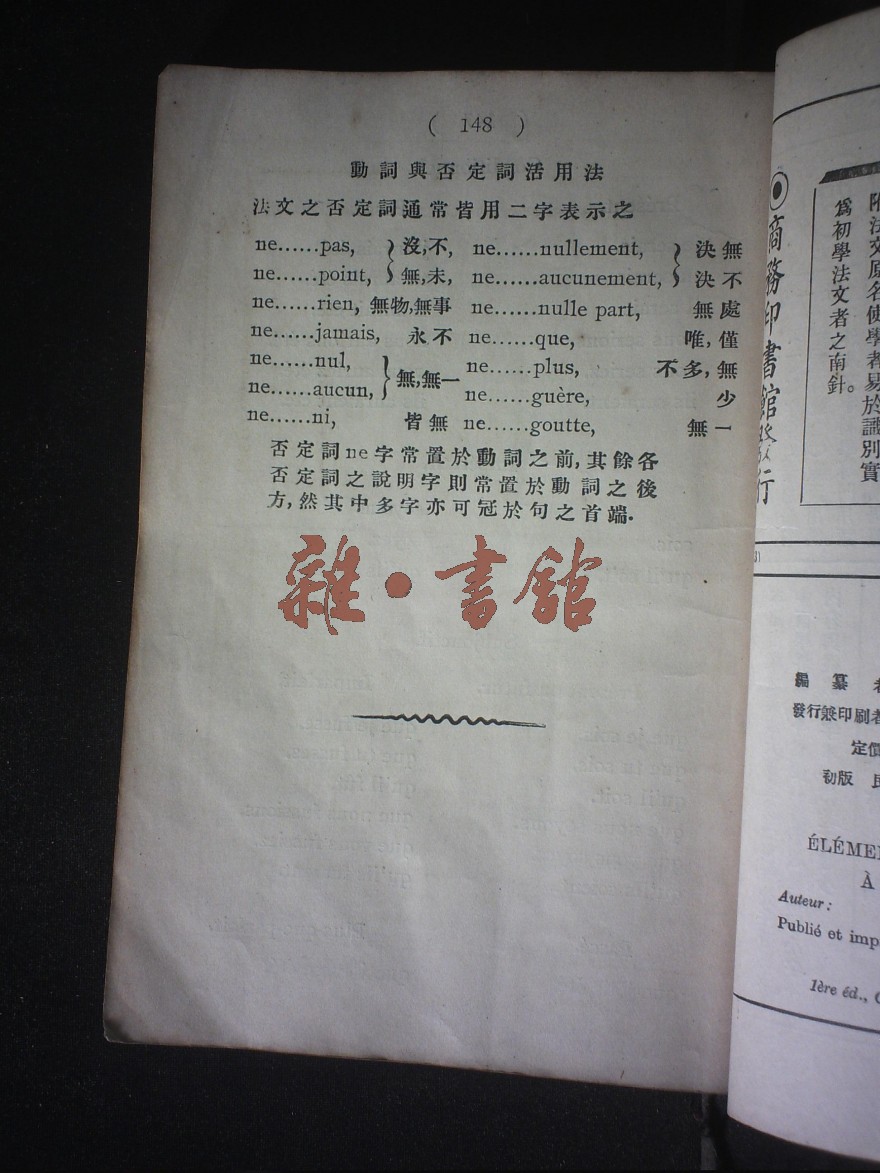 ( 148 )
動詞與否定詞活用法
法文之否定詞通常皆用二字表示之
ne……pas, 沒,不, ne……nullement, 決無
ne……point, 無,未, ne……aucunement, 決不
ne……rien, 無物,無事 ne……nulle part, 無處
ne……jamais, 永不 ne……que, 唯,僅
ne……nul, 無,無一 ne……plus, 不多,無
ne……aucun, ne……guère, 少
ne……ni, 皆無 ne……goutte, 無一
否定詞ne字常置於動詞之前,其餘各
否定詞之說明字則常置於動詞之後
方,然其中多字亦可冠於句之首端.
雜·書館
附法文原名使學者易於識別實
爲初學法文者之南針。
商務印書館發行
編纂者
發行兼印刷者
定價
初版 民
ÉLÉME
À
Auteur:
Publié et imp
1ère éd.,